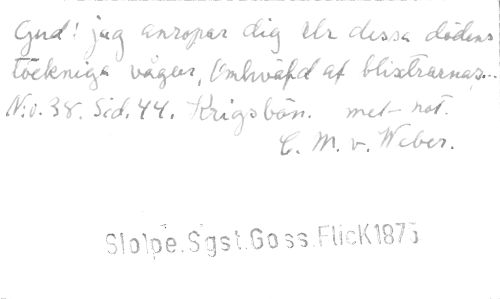 Gud! jag anropar dig Ur dessa dödens
töckniga vågor, Omhväfd af blixtrarnas...
N:o. 38. Sid. 44. Krigsbön. met not.
C. M. v. Weber.
Stolpe.Sgst.Goss.Flick 1875